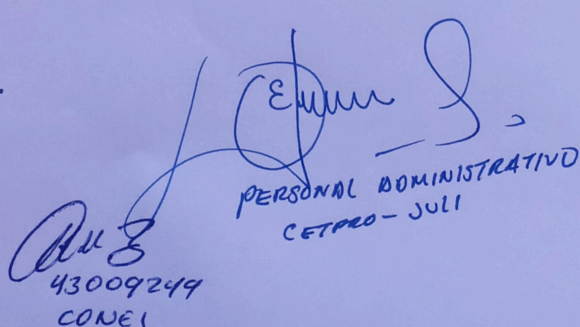 PERSONAL ADMINISTRATIVO
CETPRO - JULI
43009249
CONEI